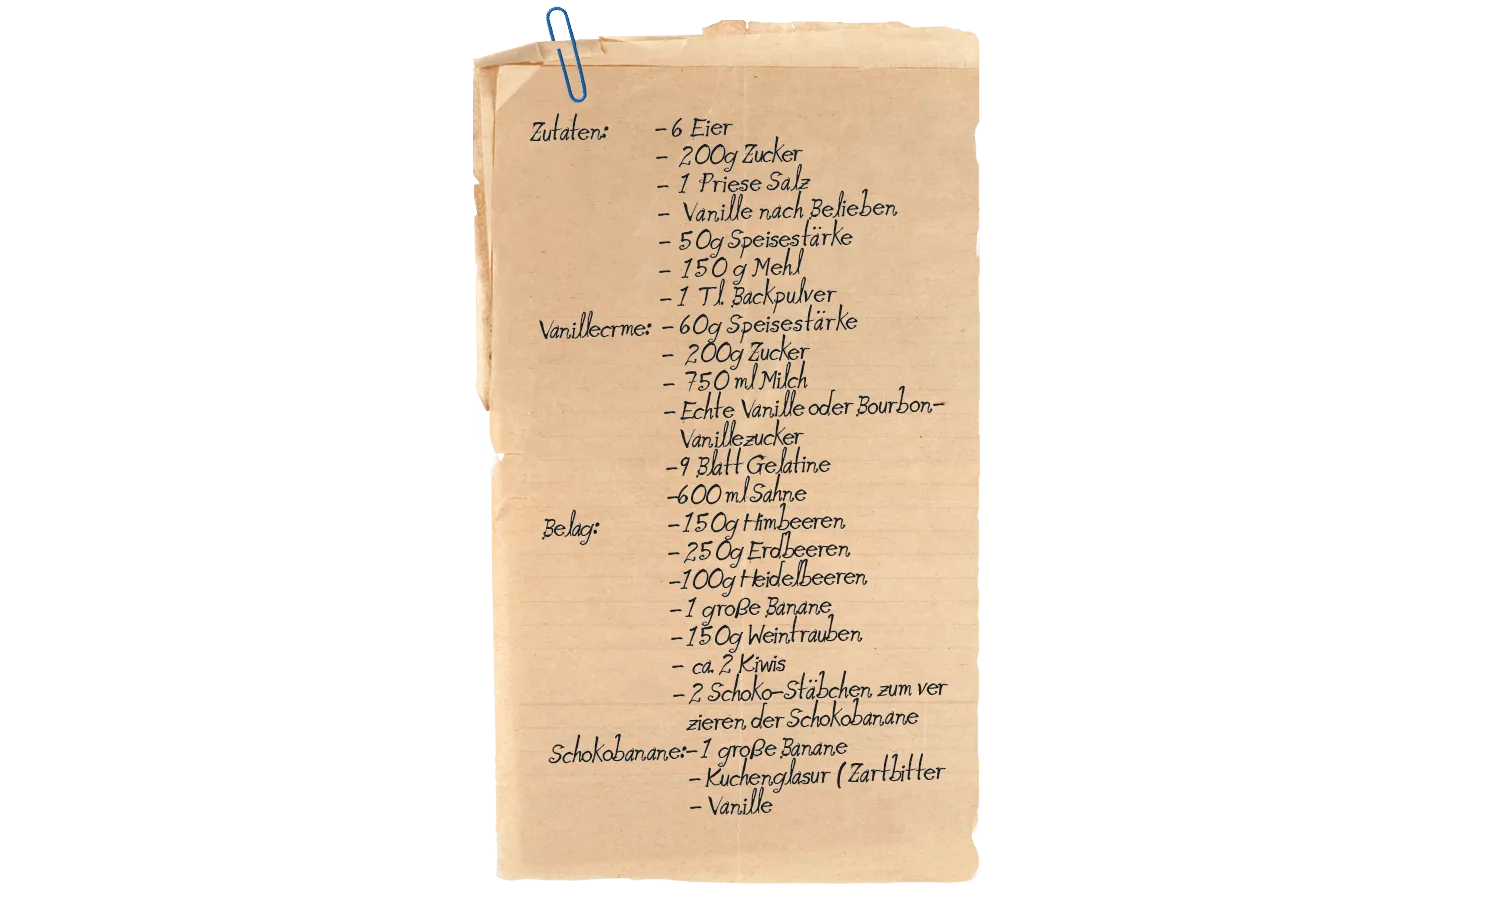 Zutaten: - 6 Eier
- 200g Zucker
- 1 Priese Salz
- Vanille nach Belieben
- 50g Speisestärke
- 150 g Mehl
- 1 Tl. Backpulver
Vanillecrme: - 60g Speisestärke
- 200g Zucker
- 750 ml Milch
- Echte Vanille oder Bourbon-
Vanillezucker
- 9 Blatt Gelatine
- 600 ml Sahne
Belag: - 150g Himbeeren
- 250g Erdbeeren
- 100g Heidelbeeren
- 1 große Banane
- 150g Weintrauben
- ca. 2 Kiwis
- 2 Schoko-Stäbchen zum ver
zieren der Schokobanane
Schokobanane: - 1 große Banane
- Kuchenglasur (Zartbitter
- Vanille